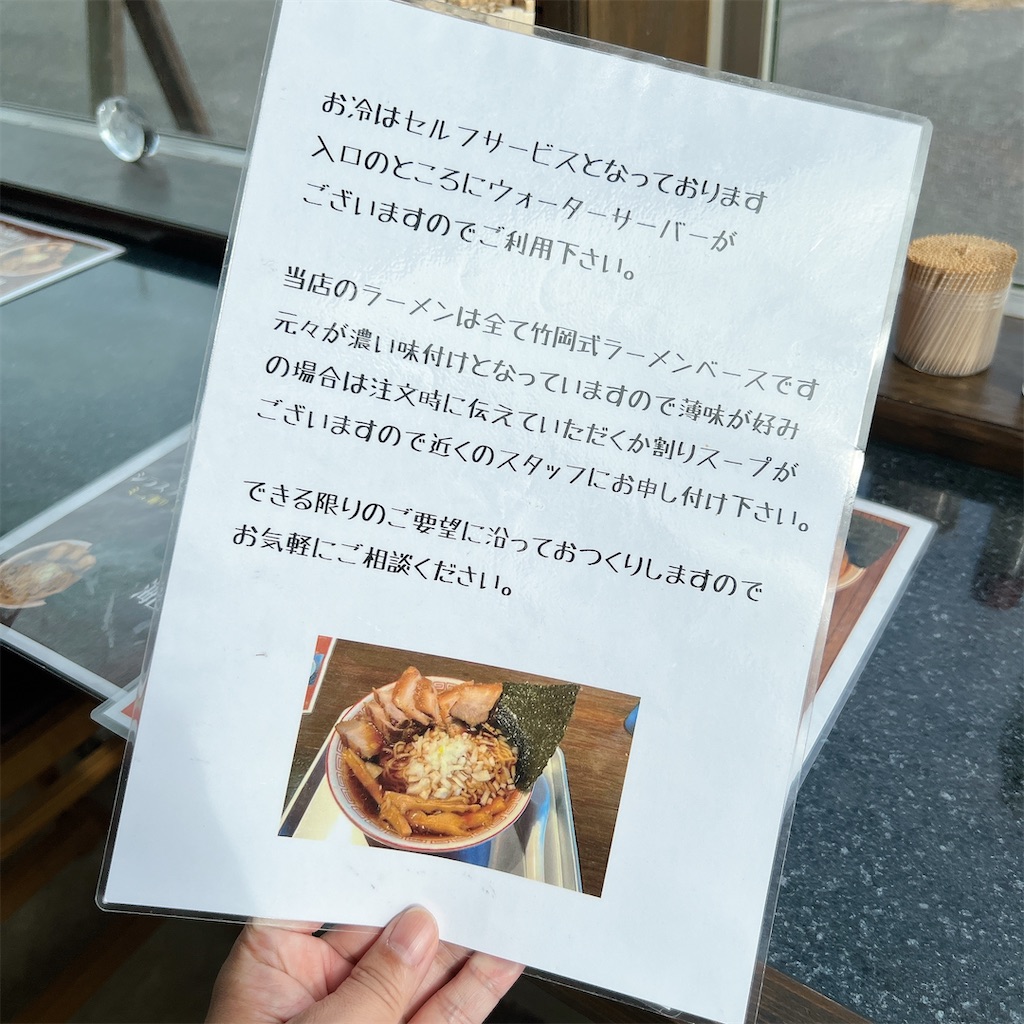 お冷はセルフサービスとなっております
入口のところにウォーターサーバーが
ございますのでご利用下さい。
当店のラーメンは全て竹岡式ラーメンベースです
元々が濃い味付けとなっていますので薄味が好み
の場合は注文時に伝えていただくか割りスープが
ございますので近くのスタッフにお申し付け下さい。
できる限りのご要望に沿っておつくりしますので
お気軽にご相談ください。